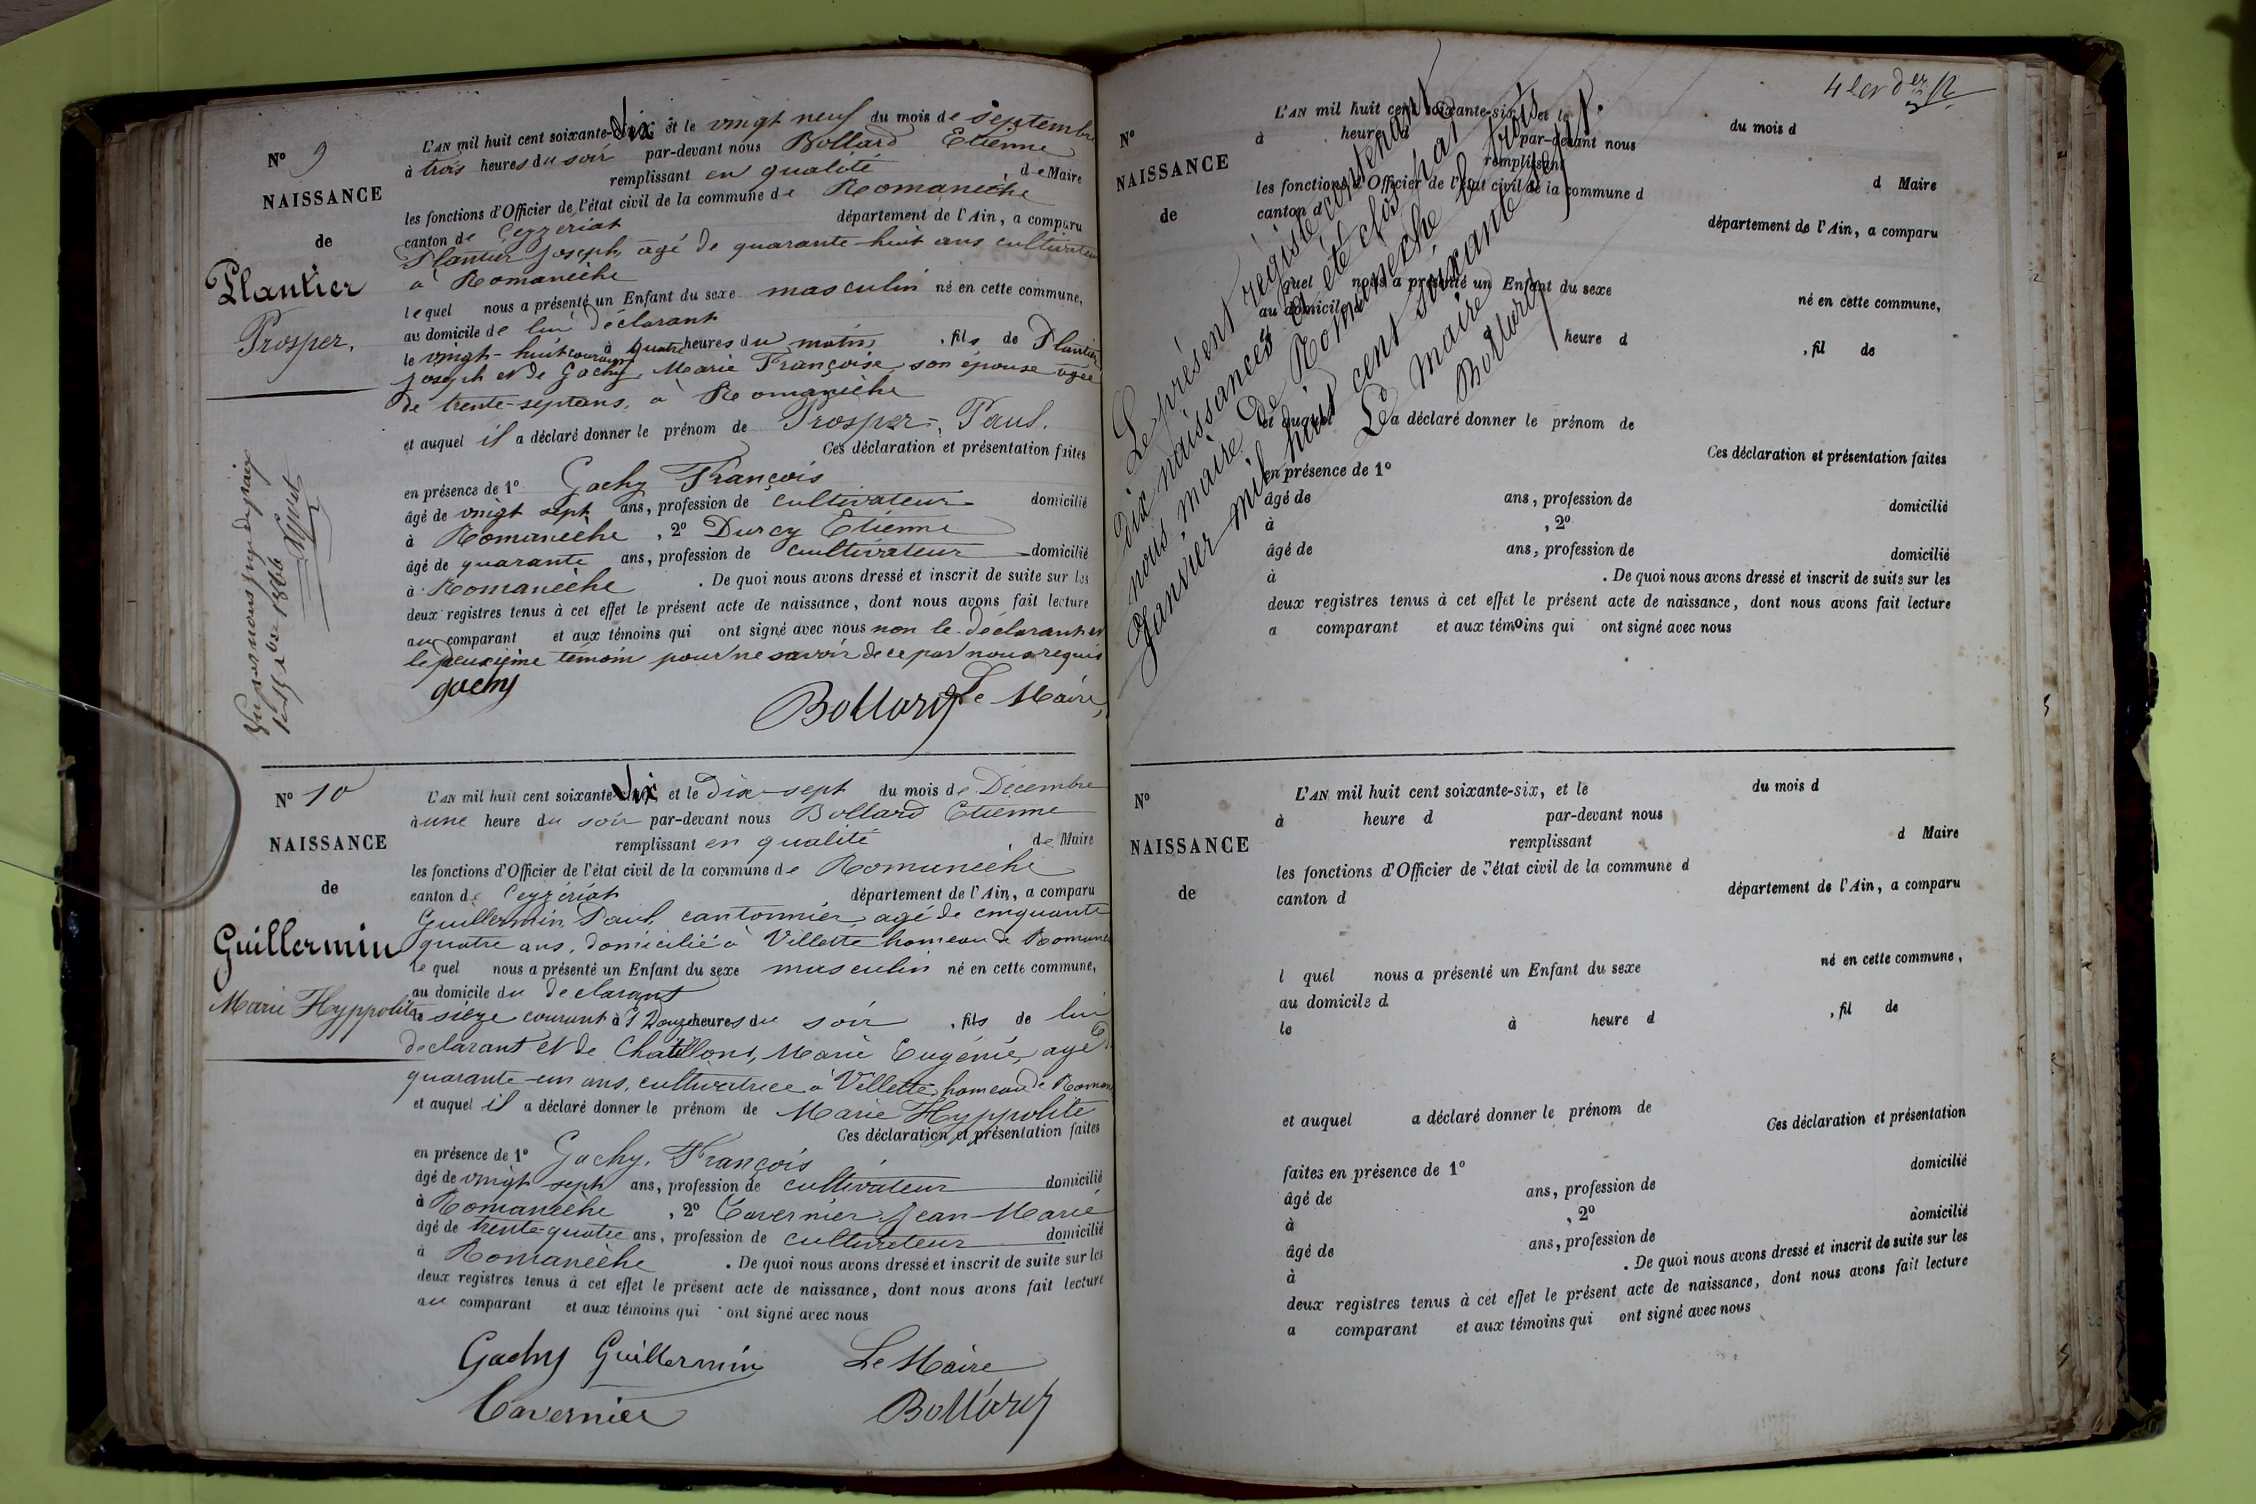 N° 9
NAISSANCE
de
Plantier
Prosper.
Vu par nous juge de paix
L'AN mil huit cent soixante-Six et le vingt neuf du mois de septembre
à trois heures du soir par-devant nous Bollard Etienne
remplissant en qualité de Maire
les fonctions d'Officier de l'état civil de la commune de Romanèche
canton de Ceyzériat département de l'Ain, a comparu
Plantier Joseph, agé de quarante-huit ans cultivateur
à Romanèche
lequel nous a présenté un Enfant du sexe masculin né en cette commune,
au domicile de lui déclarant
le vingt-huit courant à quatre heures du matin, fils de Plantier
Joseph et de Gachy, Marie Françoise son épouse agée
de trente-sept ans, à Romanèche
et auquel il a déclaré donner le prénom de Prosper, Paul.
Ces déclaration et présentation faites
en présence de 1° Gachy François
âgé de vingt sept ans, profession de cultivateur domicilié
à Romanèche, 2° Durcy Etienne
âgé de quarante ans, profession de cultivateur domicilié
à Romanèche. De quoi nous avons dressé et inscrit de suite sur les
deux registres tenus à cet effet le présent acte de naissance, dont nous avons fait lecture
au comparant et aux témoins qui ont signé avec nous non le déclarant et
le deuxième témoin pour ne savoir de ce par nous requis
gachy
Le Maire,
Bollard
N° 10
NAISSANCE
de
Guillermin
Marie Hyppolite
L'AN mil huit cent soixante-Six et le dix-sept du mois de Décembre
à une heure du soir par-devant nous Bollard Etienne
remplissant en qualité de Maire
les fonctions d'Officier de l'état civil de la commune de Romanèche
canton de Ceyzériat département de l'Ain, a comparu
Guillermin Paul, cantonnier agé de cinquante
quatre ans, domicilié à Villette hameau de Romanè
le quel nous a présenté un Enfant du sexe masculin né en cette commune,
au domicile du declarant
le sieze courant à douze heures du soir, fils de lui
declarant et de Chatillons, Marie Eugénie, agé de
quarante-un ans, cultivatrice à Villette, hameau de Roman
et auquel il a déclaré donner le prénom de Marie Hyppolite
Ces déclaration et présentation faites
en présence de 1° Gachy, François
âgé de vingt sept ans, profession de cultivateur domicilié
à Romanèche, 2° Tavernier Jean-Marie
âgé de trente-quatre ans, profession de cultivateur domicilié
à Romanèche. De quoi nous avons dressé et inscrit de suite sur les
deux registres tenus à cet effet le présent acte de naissance, dont nous avons fait lecture
au comparant et aux témoins qui ont signé avec nous
Gachy Guillermin Le Maire
Tavernier Bollard
N°
NAISSANCE
de
L'AN mil huit cent soixante-six, et le du mois d
à heure d par-devant nous
remplissant d Maire
les fonctions d'Officier de l'état civil de la commune d
canton d département de l'Ain, a comparu
l quel nous a présenté un Enfant du sexe né en cette commune,
au domicile d
le à heure d , fil de
et auquel a déclaré donner le prénom de
Ces déclaration et présentation faites
en présence de 1°
âgé de ans, profession de domicilié
à , 2°
âgé de ans, profession de domicilié
à . De quoi nous avons dressé et inscrit de suite sur les
deux registres tenus à cet effet le présent acte de naissance, dont nous avons fait lecture
a comparant et aux témoins qui ont signé avec nous
Le présent régistre contenant
dix naissances a été clos par
nous maire de Romanèche le trois
Janvier mil huit cent soixante sept.
Le Maire
Bollard
N°
NAISSANCE
de
L'AN mil huit cent soixante-six, et le du mois d
à heure d par-devant nous
remplissant d Maire
les fonctions d'Officier de l'état civil de la commune d
canton d département de l'Ain, a comparu
l quel nous a présenté un Enfant du sexe né en cette commune,
au domicile d
le à heure d , fil de
et auquel a déclaré donner le prénom de
Ces déclaration et présentation
faites en présence de 1°
âgé de ans, profession de domicilié
à , 2°
âgé de ans, profession de domicilié
à . De quoi nous avons dressé et inscrit de suite sur les
deux registres tenus à cet effet le présent acte de naissance, dont nous avons fait lecture
a comparant et aux témoins qui ont signé avec nous